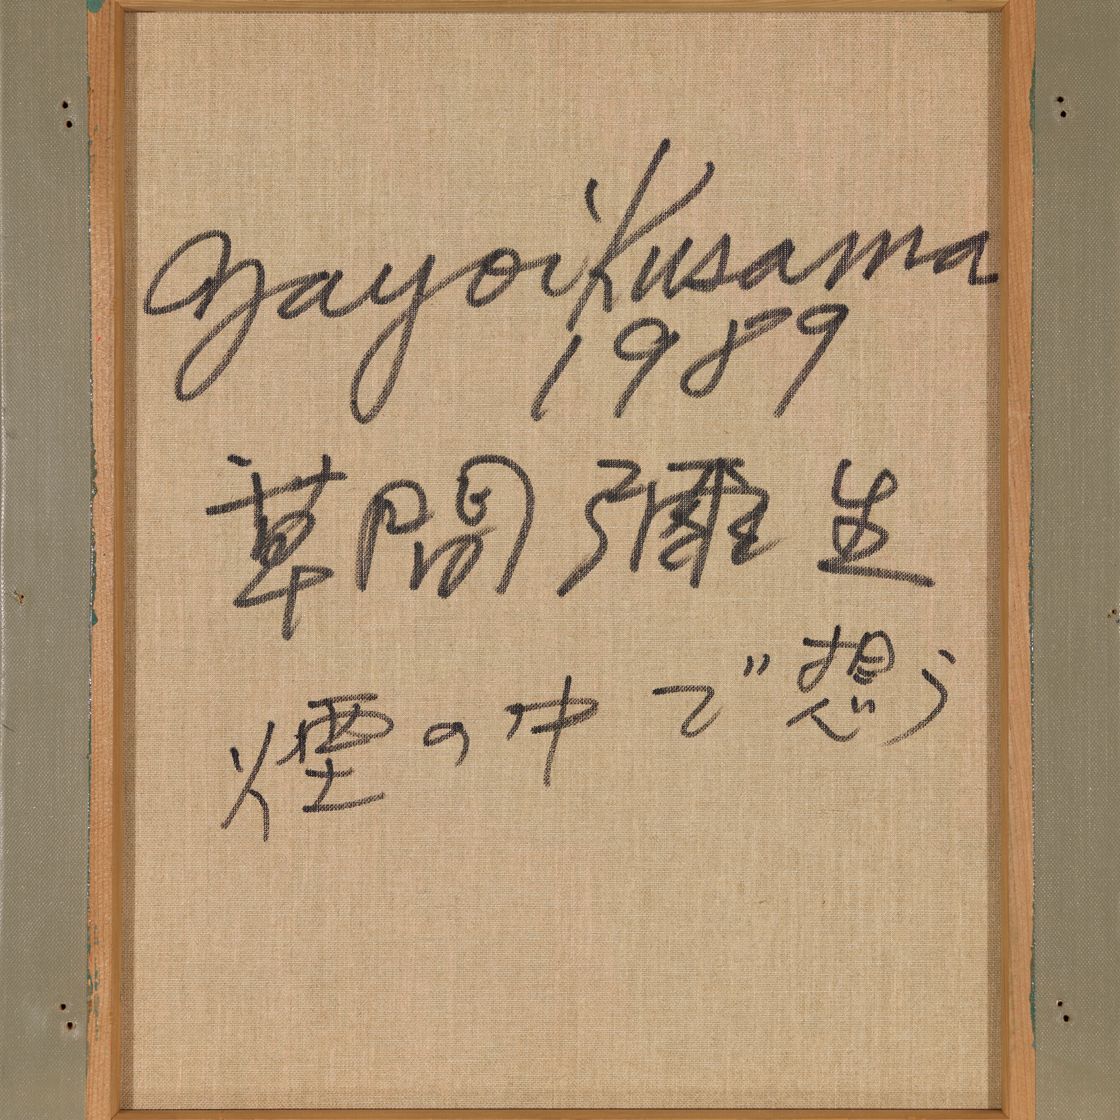 Yayoi Kusama
1989
草間彌生
煙の中で想う